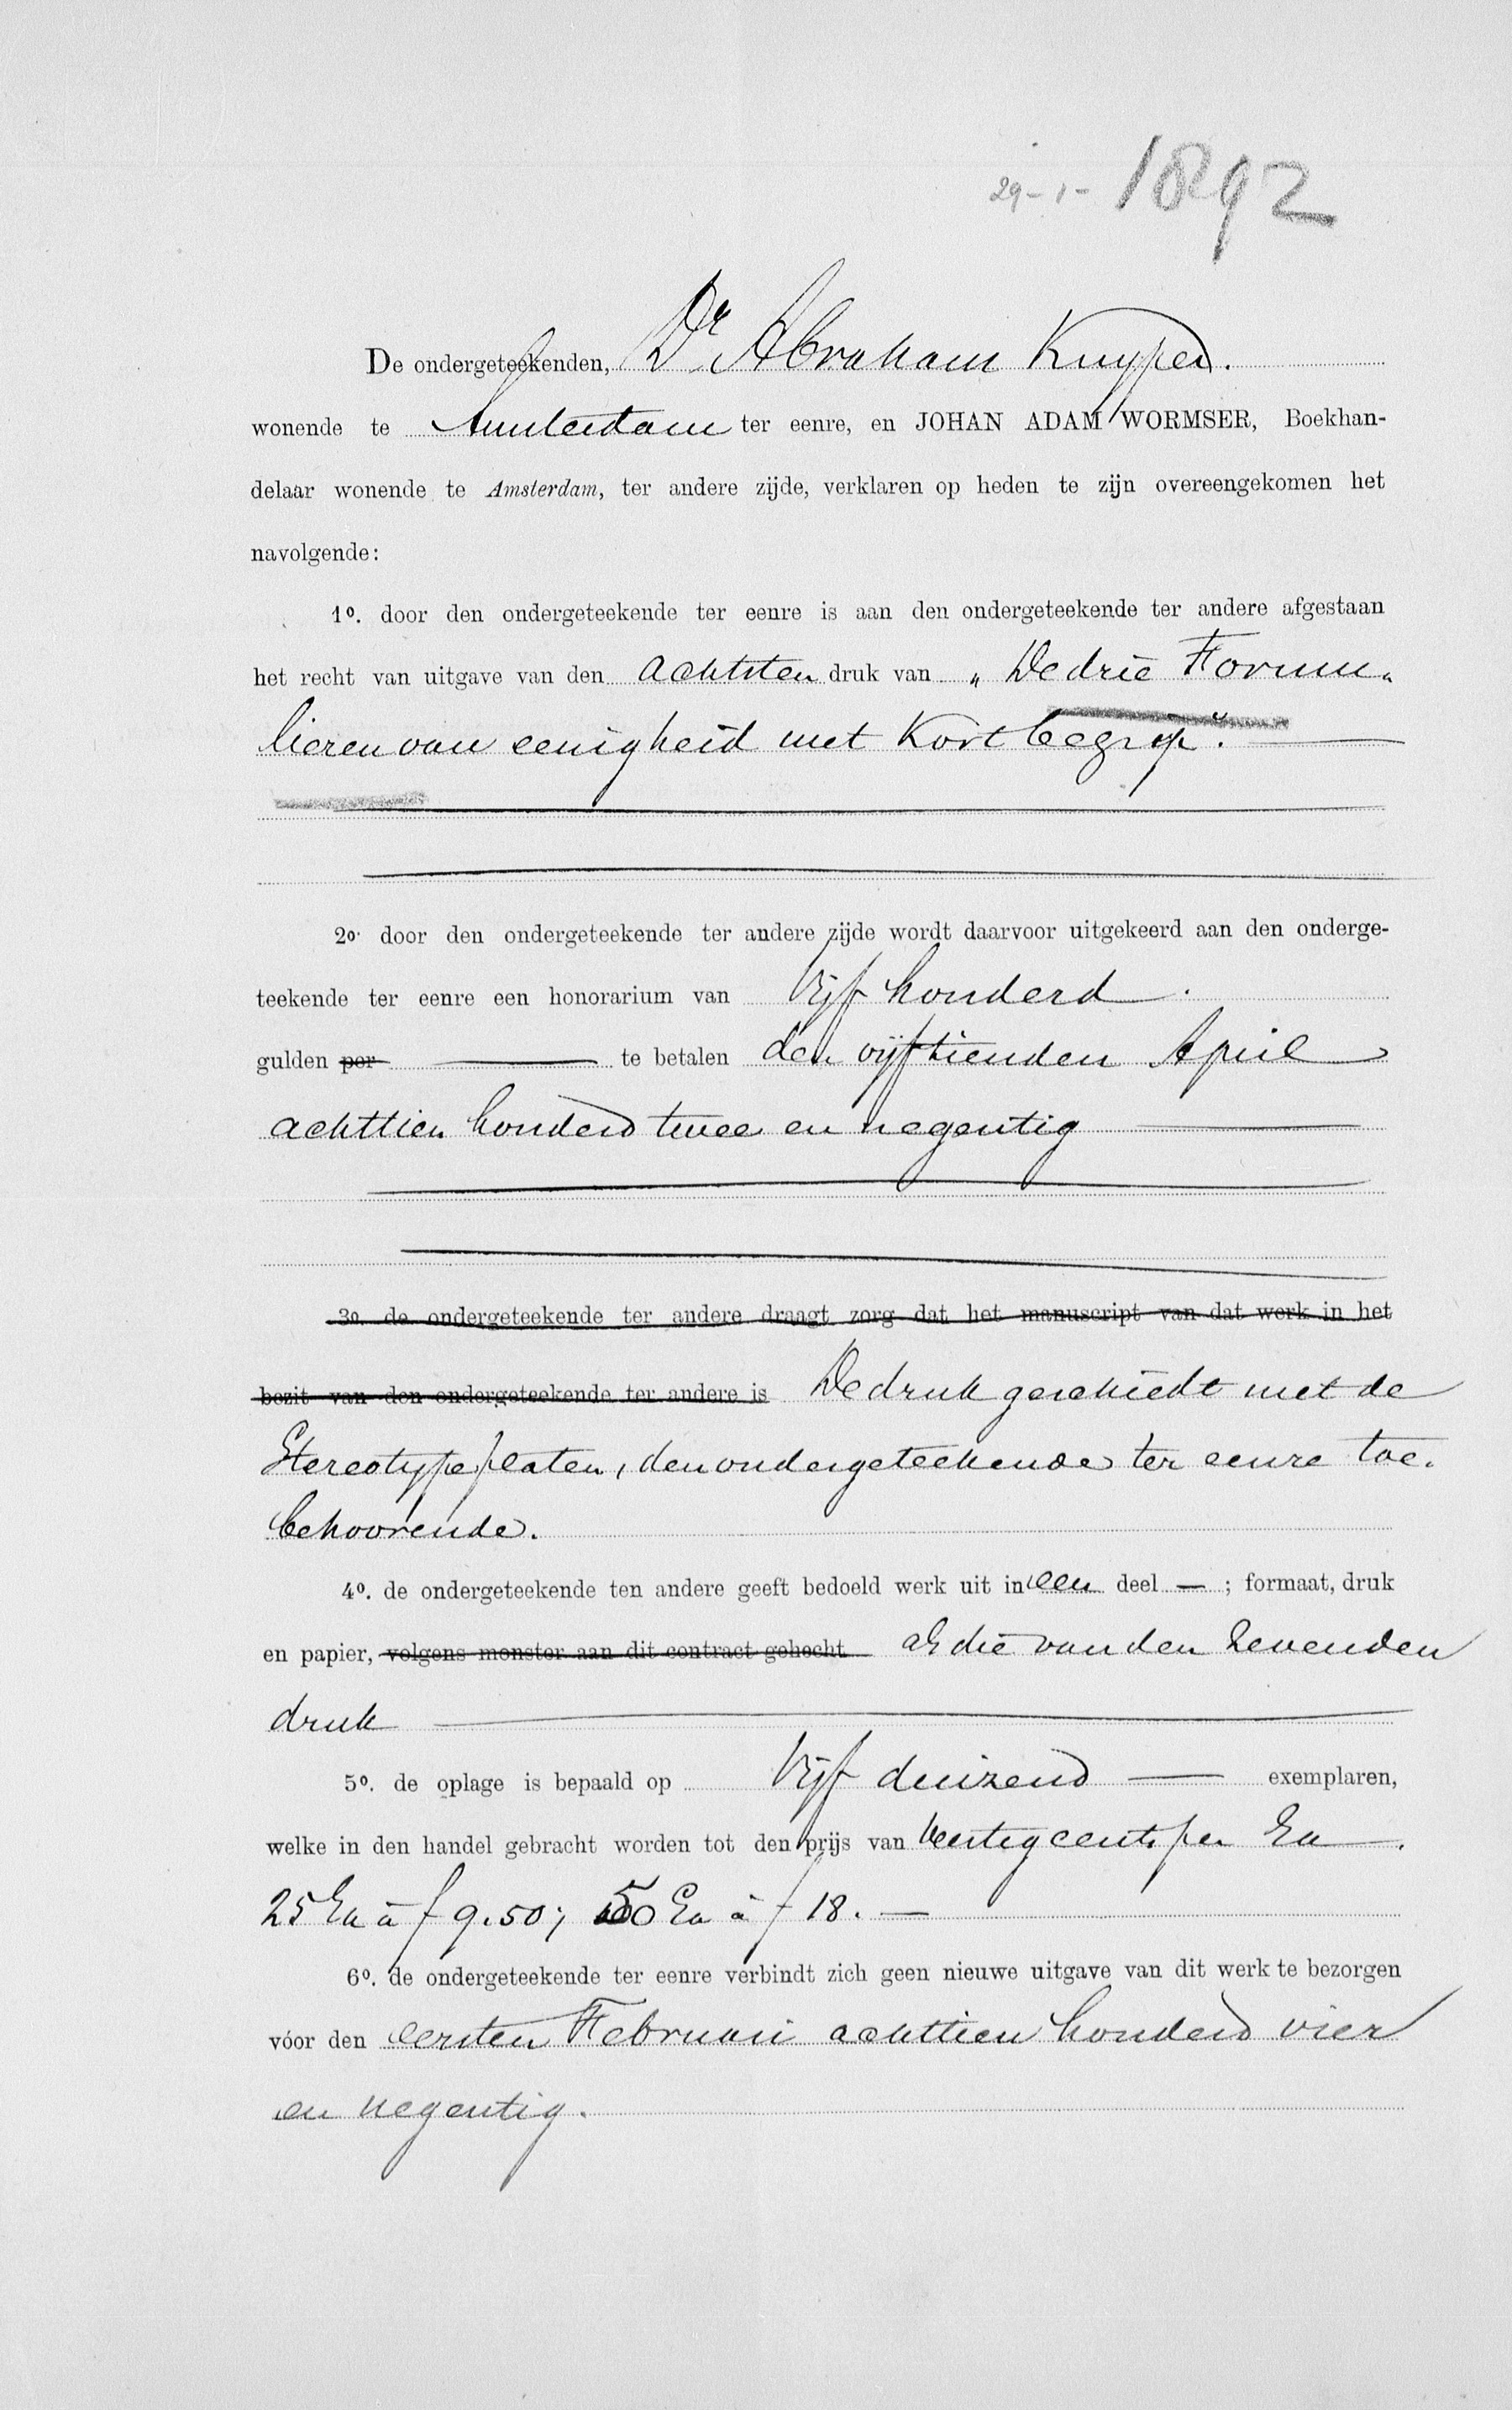 29-1-1892
De ondergeteekenden, Dr Abraham Kuyper.
wonende te Amsterdam ter eenre, en JOHAN ADAM WORMSER, Boekhan-
delaar wonende te Amsterdam, ter andere zijde, verklaren op heden te zijn overeengekomen het
navolgende:
1o. door den ondergeteekende ter eenre is aan den ondergeteekende ter andere afgestaan
het recht van uitgave van den achtsten druk van „De drie Formu„
lieren van eenigheid met Kort begrip".
2o. door den ondergeteekende ter andere zijde wordt daarvoor uitgekeerd aan den onderge-
teekende ter eenre een honorarium van Vijf honderd.
gulden per te betalen den vijftienden April
achttien honderd twee en negentig
3o. de ondergeteekende ter andere draagt zorg dat het manuscript van dat werk in het
bezit van den ondergeteekende ter andere is De druk geschiedt met de
Stereotypeplaten, den ondergeteekende ter eenre toe.
behoorende.
4o. de ondergeteekende ten andere geeft bedoeld werk uit in een deel — ; formaat, druk
en papier, volgens monster aan dit contract gehecht als die van den Zevenden
druk
5o. de oplage is bepaald op Vijf duizend — exemplaren,
welke in den handel gebracht worden tot den prijs van Veertig cents per Ex.
25 Ex à f 9.50; 50 Ex à f 18.—
6o. de ondergeteekende ter eenre verbindt zich geen nieuwe uitgave van dit werk te bezorgen
vóor den eersten Februari achttien honderd vier
en negentig.